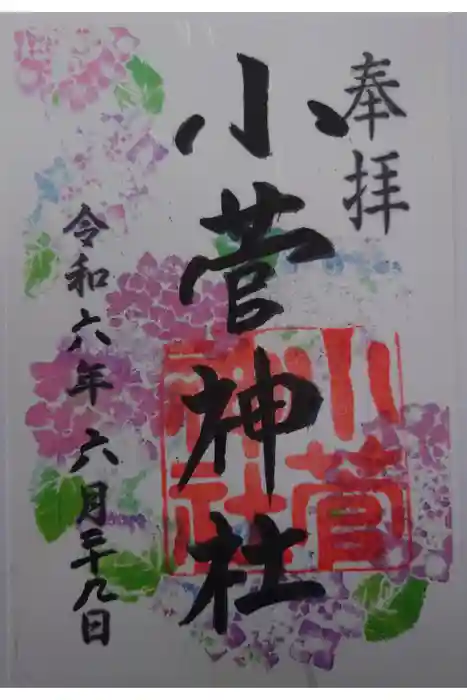 奉拝
小菅神社
小菅神社
令和六年六月二十九日